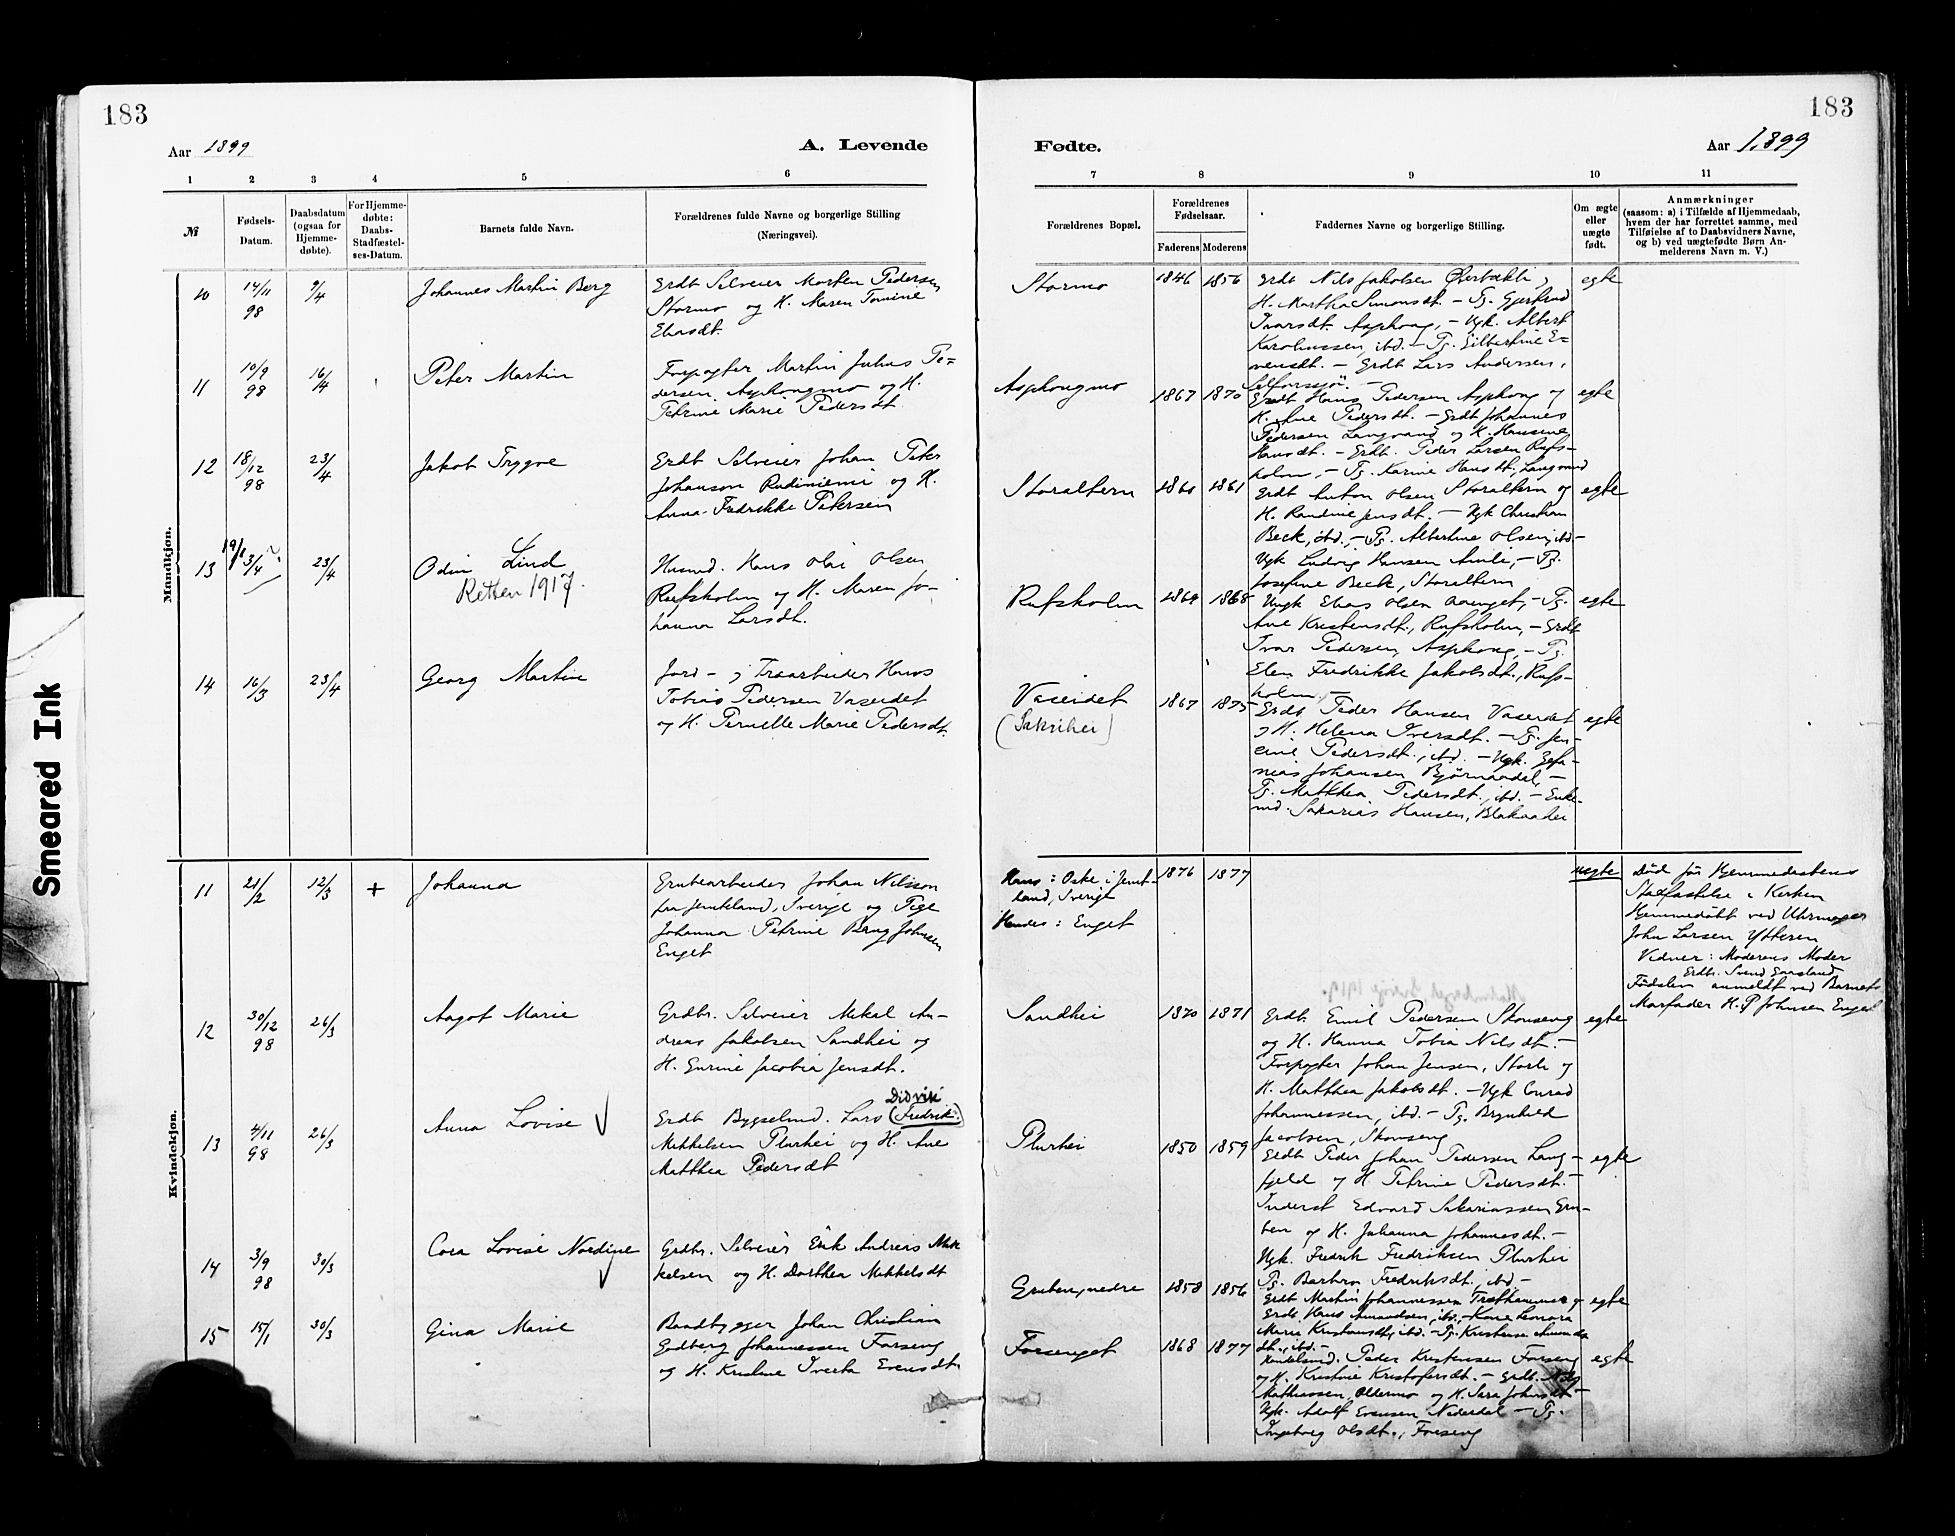 183
Aar 1899
A. Levende
1
2
3
4
5
6
№
Fødsels-
Datum.
Daabsdatum
(ogsaa for
Hjemme-
døbte).
For Hjemme-
døbte:
Daabs-
Stadfæstel-
ses-Datum.
Barnets fulde Navn.
Forældrenes fulde Navne og borgerlige Stilling
(Næringsvei).
Mandkjøn.
10
14/11
98
9/4
Johannes Martin Berg
Grdb Selveier Morten Pedersen
Stormo og H. Maren Tomine
Eliasdt.
11
10/9
98
16/4
Peter Martin
Forpagter Martin Julius Pe=
dersen Asphougmo og H.
Petrine Marie Pedersdt.
12
18/12
98
23/4
Jakob Trygve
Grdb Selveier Johan Peter
Johanson Rudiniemi og H.
Anna Fredrikke Petersen
13
19/1 3/4
23/4
Odin Lind
Retten 1917.
Husmd. Hans Olai Olsen
Rufsholm og H. Maren Jo-
hanna Larsdt.
14
16/3
23/4
Georg Martin
Jord- og Træarbeider Hans
Tobias Pedersen Vaseidet
og H. Pernelle Marie Pedersdt.
Kvindekjøn.
11
21/2
12/3
+
Johanna
Grubearbeider Johan Nilsson
fra Jemteland, Sverige og Pige
Johanna Petrine Berg Johnsen
Enget
12
30/12
98
26/3
Aagot Marie
Grdbr. Selveier Mekal An-
dreas Jakobsen Sandhei og
H. Gurine Jacobia Jensdt.
13
4/11
98
26/3
Anna Lovise
Didrik
Grdb Bygselmd. Lars (Fredrik)
Mikkelsen Plurhei og H. Ane
Matthea Pedersdt
14
3/9
98
30/3
Cora Lovise Nordine
Grdbr. Selveier Erik Andreas Mik
kelsen og H. Dorthea Mikkelsdt
15
15/1
30/3
Gina Marie
Baadbygger Johan Christian
Godberg Johannessen Forseng
og H. Kristine Iverta Evensdt.
Smeared Ink
183
Fødte.
Aar 1899
7
8
9
10
11
Forældrenes Bopæl.
Forældrenes
Fødselsaar.
Faderens
Moderens
Faddernes Navne og borgerlige Stilling.
Om ægte
eller
uægte
født.
Anmærkninger
(saasom: a) i Tilfælde af Hjemmedaab,
hvem der har forrettet samme, med
Tilføielse af to Daabsvidners Navne,
og b) ved uægtefødte Børn An-
melderens Navn m. V.)
Stormo
1846
1856
Grdb Nils Jakobsen Øverbakli og
H. Martha Simonsdt. - Pg. Gjertrud
Ivarsdt. Asphoug, - Ugk. Albert
Karoliussen, ibd. - Pg. Gilbertine E-
vensdt. - Grdb Lars Andersen,
Selforssjø. -
egte
Asphougmo
1867
1870
Grdb Hans Pedersen Asphoug og
H. Ane Pedersdt. - Grdb Johannes
Pedersen Langvand og H. Hansine
Hansdt. - Grdb. Peder Larsen Rufs-
holm, - Pg. Karine Hansdt, Langvand
egte
Storaltern
1860
1861
Grdb Anton Olsen Storaltern og
H. Randine Jensdt. - Ugk Christian
Beck, ibd, - Pg. Albertine Olsen, ibd -
Ugk Ludvig Hansen Amli, - Pg.
Josefine Beck, Storaltern
egte
Rufsholm
1864
1868
Ungk Elias Olsen Aaenget, - Pg.
Ane Kristensdt., Rufsholm, - Grdb
Ivar Pedersen, Asphoug, - Pg.
Elen Fredrikke Jakobsdt., Rufs-
holm, -
egte
Vaseidet
(Sakrihei)
1867
1875
Grdb Peder Hansen Vaseidet
og H. Helena Iversdt. - Pg. Jen-
sine Pedersdt., ibd. - Ugk. Zefa-
nias Johansen Bjørnaadal, -
Pg. Matthea Pedersdt., ibd. - Enke-
md. Sakarias Hansen, Blakaadei
egte
Hans: Oske i Jemt-
land, Sverige
Hendes: Enget
1876
1877
uegte
Død før Hjemmedaabens
Stadfæstelse i Kirken
Hjemmedøbt ved Uhrmager
John Larsen Ytteren
Vidner: Moderens Moder
Grdbr. Svend Gaasland
Fødslen anmeldt ved Barnets
Morfader H. P Johnsen Enget
Sandhei
1870
1871
Grdb. Emil Pedersen Skonseng
og H. Hanna Tobia Nilsdt. -
Forpagter Johan Jensen, Storli og
H. Matthea Jakobsdt. - Ugk Conrad
Johannessen, ibd. - Pg. Brynhild
Jacobsen, Skonseng
egte
Plurhei
1850
1859
Grdb Peder Johan Pedersen Lang-
fjeld og H Petrine Pedersdt. -
Inderst Edvard Sakariassen Gru-
ben og H. Johanna Johannesdt. -
Ugk. Fredrik Fredriksen Plurhei
Pg. Barbra Fredriksdt. ibd. -
egte
Gruben, nedre
1858
1856
Grdb Martin Johannessen Træthammer og
Grdb. Hans Amundsen, ibd, - Kone Leonora
Marie Kristiansdt, ibd. - Pg. Kristense Amunds
dt., ibd. -
egte
Forsenget
1868
1877
Handelsmd. Peder Kristensen Forseng
og H. Kristine Kristofersdt. - Grdb. Nils
Mathiassen, Oldermo og H. Sara Johnsdt -
Ugk. Adolf Evensen Nederdal - Pg.
Ingeborg Olsdt., Forseng
egte